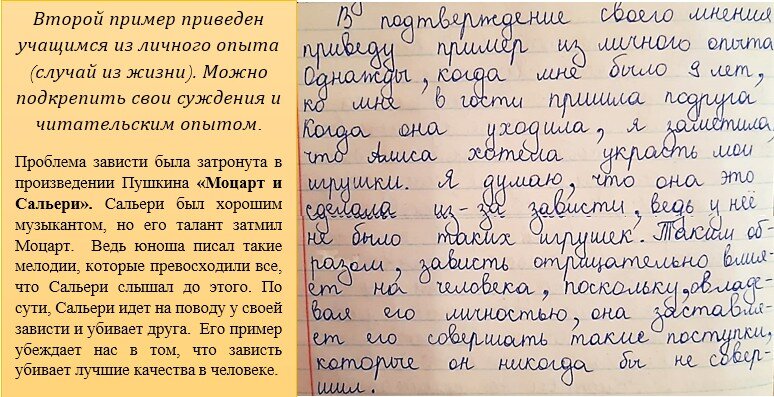 Второй пример приведен
учащимся из личного опыта
(случай из жизни). Можно
подкрепить свои суждения и
читательским опытом.
Проблема зависти была затронута в
произведении Пушкина «Моцарт и
Сальери». Сальери был хорошим
музыкантом, но его талант затмил
Моцарт. Ведь юноша писал такие
мелодии, которые превосходили все,
что Сальери слышал до этого. По
сути, Сальери идет на поводу у своей
зависти и убивает друга. Его пример
убеждает нас в том, что зависть
убивает лучшие качества в человеке.
В подтверждение своего мнения
приведу пример из личного опыта
Однажды, когда мне было 9 лет,
ко мне в гости пришла подруга,
Когда она уходила, я заметила,
что Алиса хотела украсть мои
игрушки. Я думаю, что она это
сделала из-за зависти, ведь у неё
не было таких игрушек. Таким об-
разом, зависть отрицательно влия-
ет на человека, поскольку, овладе-
вая его личностью, она заставля-
ет его совершать такие поступки,
которые он никогда бы не совер-
шил.